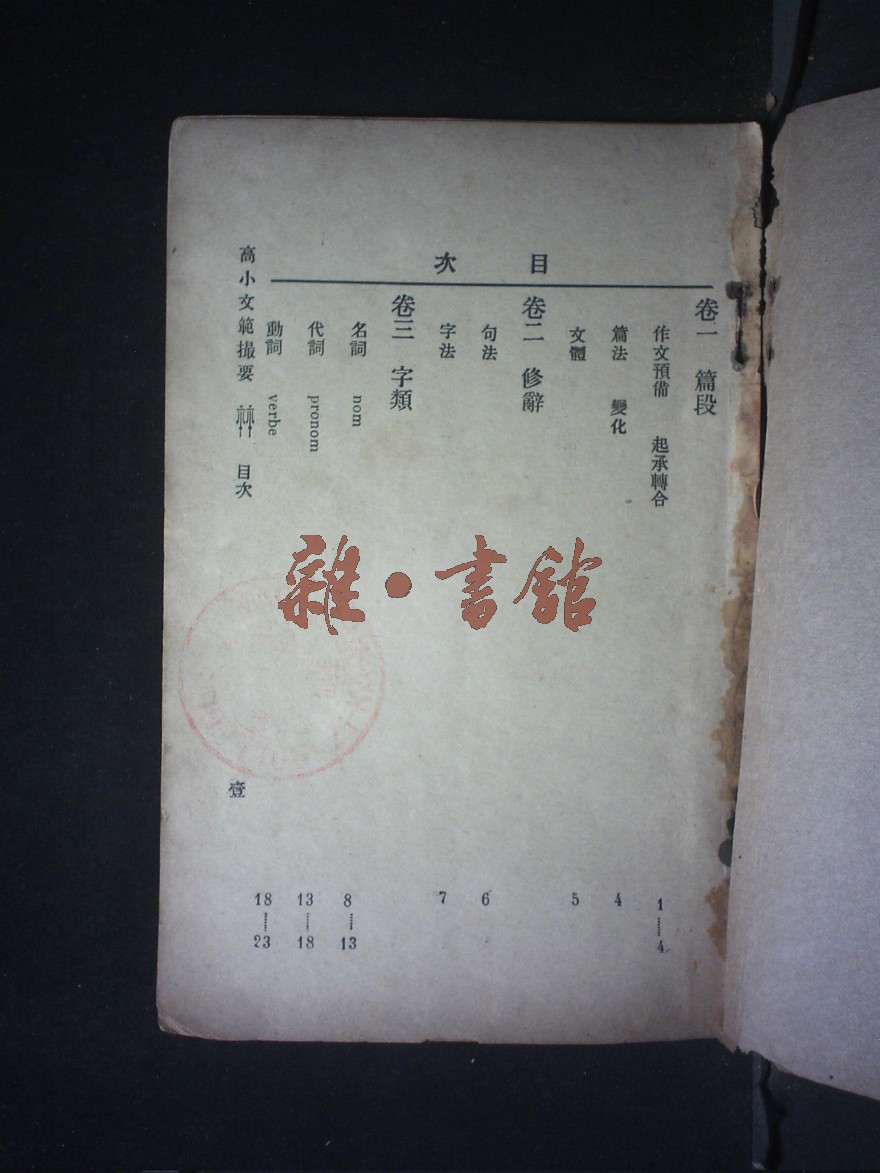 目次
卷一 篇段
作文預備 起承轉合 1……4
篇法 變化 4
文體 5
卷二 修辭
句法 6
字法 7
卷三 字類
名詞 nom 8……13
代詞 pronom 13……18
動詞 verbe 18……23
高小文範撮要 目次 壹
雜·書館